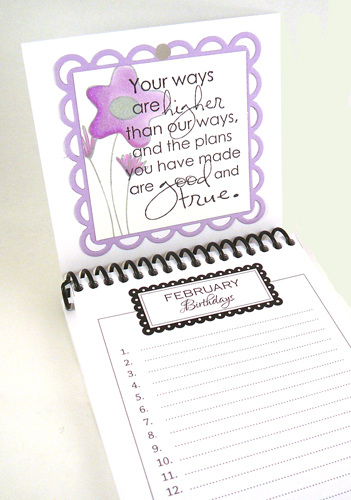 Your ways
are higher
than our ways,
and the plans
you have made
are good and
true.
FEBRUARY
Birthdays
1.
2.
3.
4.
5.
6.
7.
8.
9.
10.
11.
12.